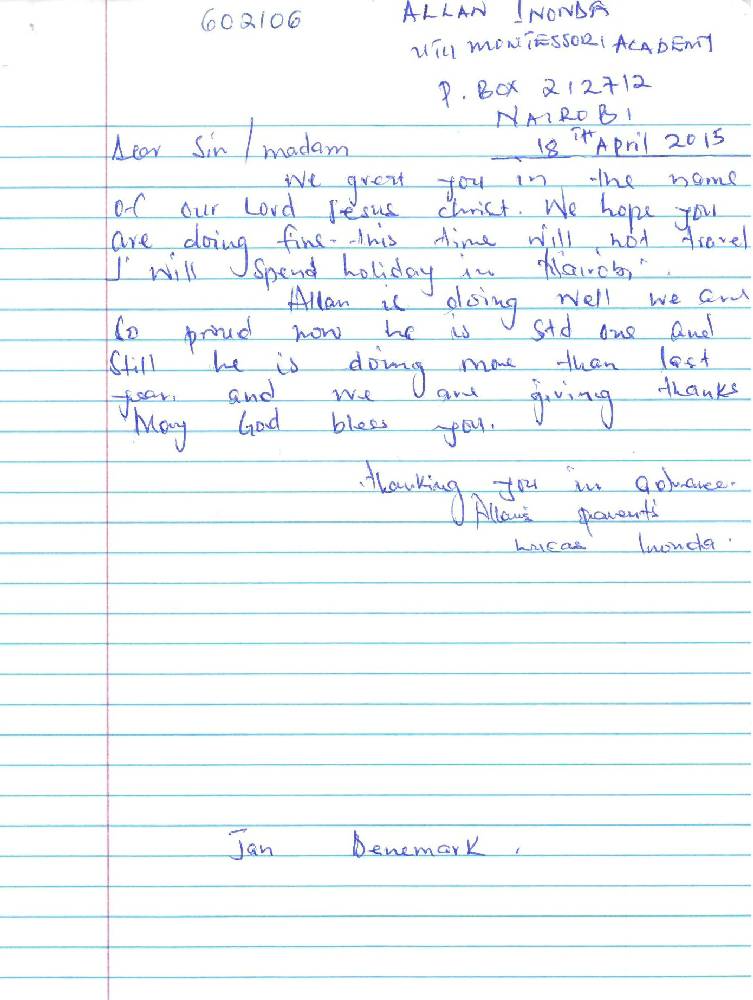 602106
ALLAN INONDA
UTU MONTESSORI ACADEMY
P. BOX 212712
NAIROBI
Dear Sir / madam
18TH April 2015
We greet you in the name
of our Lord Jesus christ. We hope you
are doing fine. this time will not travel
I will spend holiday in "Nairobi".
Allan is doing well we are
So proud now he is std one and
Still he is doing more than last
year. and we are giving thanks
May God bless you.
thanking you in advance.
Allan's parents
Lucas Inonda.
Jan Denemark.